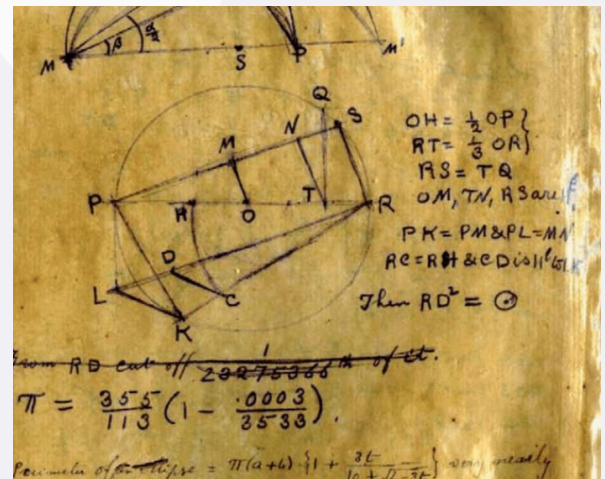 β α/2
M S P M'
Q
S
M N
P H O T R
D
L C
K
OH = ½ OP}
RT = ⅓ OR}
RS = TQ
OM, TN, RS are ||
PK = PM & PL = MN
RC = RH & CD is || to LK
Then RD² = ⊙
From RD cut off 1/23275366 th of it.
π = 355/113 (1 - .0003/3533).
Perimeter of an ellipse = π(a+b) {1 + 3t/10 + √4-3t} very nearly